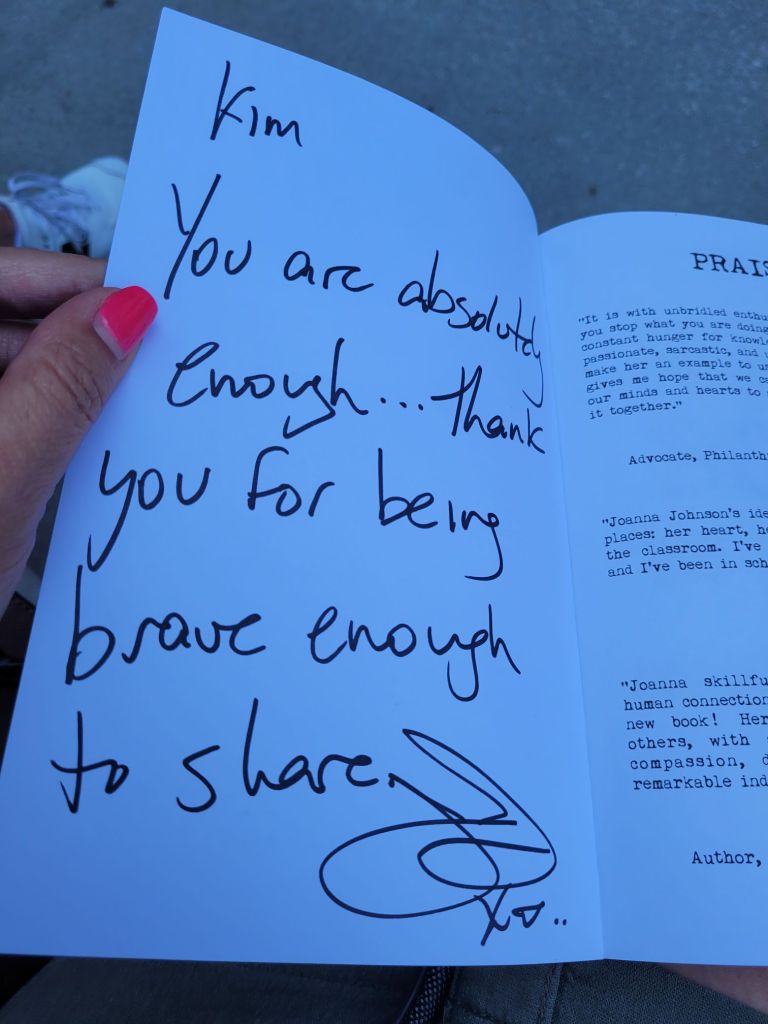 Kim
You are absolutely
enough... thank
you for being
brave enough
to share.
xo..
PRAIS
"It is with unbridled enthu
you stop what you are doing
constant hunger for knowle
passionate, sarcastic, and
make her an example to us
gives me hope that we ca
our minds and hearts to
it together."
Advocate, Philanth
"Joanna Johnson's ide
places: her heart, he
the classroom. I've
and I've been in sch
"Joanna skillfu
human connection
new book! Her
others, with
compassion, d
remarkable ind
Author,